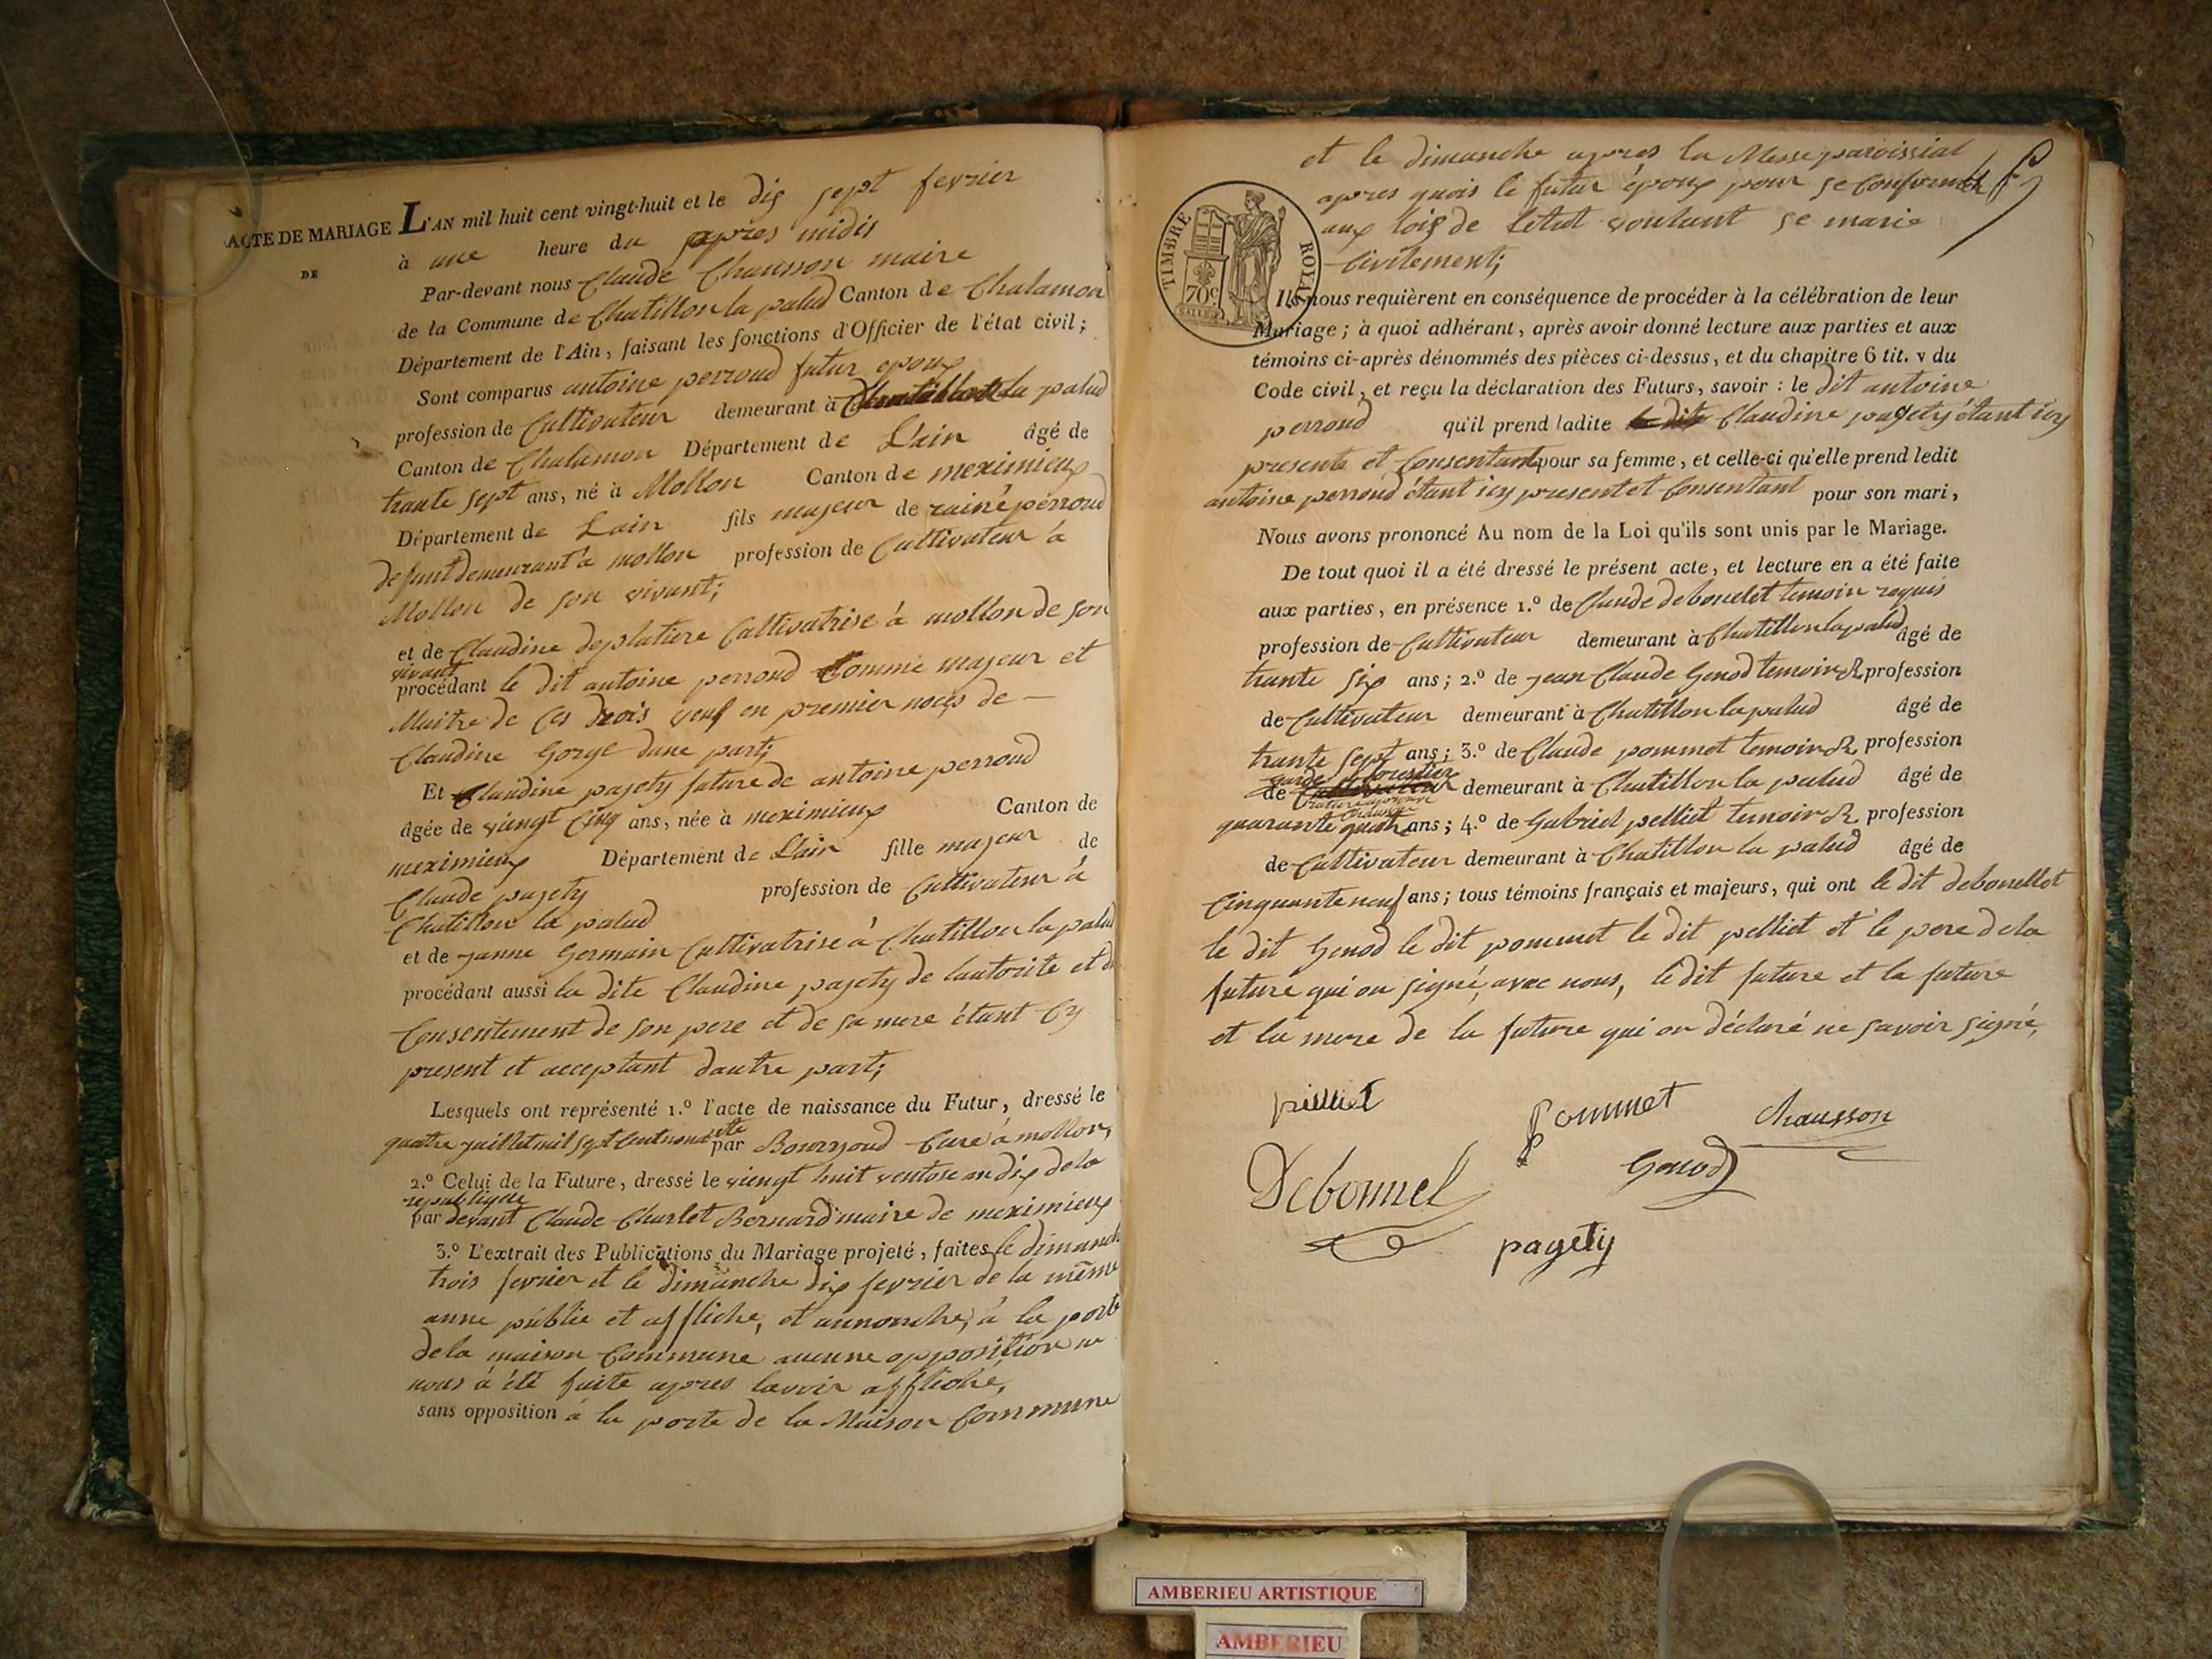 ACTE DE MARIAGE
DE
L'AN mil huit cent vingt-huit et le dix sept fevrier
à une heure du apres midis
Par-devant nous Claude Chausson maire
de la Commune de Chatillon la palud Canton de Chalamon
Département de l'Ain, faisant les fonctions d'Officier de l'état civil;
Sont comparus antoine perroud futur epoux
profession de Cultivateur demeurant à Chatillon la palud
Canton de Chalamon Département de L'ain âgé de
trante sept ans, né à Mollon Canton de meximieux
Département de Lain fils majeur de rainé perroud
defunt demeurant à mollon profession de Cultivateur à
Mollon de son vivant;
et de Claudine deplatiere Cultivatrise à mollon de son
vivant
procédant le dit antoine perroud Comme majeur et
Maitre de Ces Drois veuf en premier noces de —
Claudine Gorge dune part;
Et Claudine pagety future de antoine perroud
âgée de viengt Cinq ans, née à meximieux Canton de
meximieux Département de L'ain fille majeur de
Claude pagety profession de Cultivateur à
Chatillon la palud
et de janne Germain Cultivatrise à Chatillon la palud
procédant aussi la dite Claudine pagety de lautorite et de
Consentement de son pere et de sa mere étant Cy
present et acceptant dautre part;
Lesquels ont représenté 1.º l'acte de naissance du Futur, dressé le
quatre juillet mil sept Cent par Bournoud Cure à mollon,
2.º Celui de la Future, dressé le viengt huit ventose an dix de la
republique
par devant Claude Charlet Bernard maire de meximieux
3.º L'extrait des Publications du Mariage projeté, faites le dimanch
trois fevrier et le dimanche dix fevrier de la même
anne publie et affliche, et annonche, à la porte
de la maison Commune aucune opposition ne
nous à été faite apres lavoir affliche,
sans opposition à la porte de la Maison Commune
et le dimanche apres la Messe paroissial
apres quois le futur époux pour se Conformer
aux loix de letat voulant se marie
Civilement;
TIMBRE ROYAL
70c
Ils nous requièrent en conséquence de procéder à la célébration de leur
Mariage; à quoi adhérant, après avoir donné lecture aux parties et aux
témoins ci-après dénommés des pièces ci-dessus, et du chapitre 6 tit. v du
Code civil, et reçu la déclaration des Futurs, savoir : le dit antoine
perroud qu'il prend ladite Claudine pagety étant icy
presente et Consentant pour sa femme, et celle-ci qu'elle prend ledit
antoine perroud étant icy present et Consentant pour son mari,
Nous avons prononcé Au nom de la Loi qu'ils sont unis par le Mariage.
De tout quoi il a été dressé le présent acte, et lecture en a été faite
aux parties, en présence 1.º de Claude debouelet temoin requis
profession de Cultivateur demeurant à Chatillon la palud âgé de
trante six ans; 2.º de jean Claude Genod temoin R profession
de Cultivateur demeurant à Chatillon la palud âgé de
trante sept ans; 3.º de Claude pommet temoin R profession
garde forestier
de demeurant à Chatillon la palud âgé de
quarante quatre ans; 4.º de Gabriel pelliet temoin R profession
de Cultivateur demeurant à Chatillon la palud âgé de
Cinquante neuf ans; tous témoins français et majeurs, qui ont le dit debouellet
le dit Genod le dit pommet le dit pelliet et le pere de la
future qui on signé, avec nous, le dit future et la future
et la mere de la future qui on déclaré ne savoir signé,
pelliet
pommet
Chausson
Genod
Debonnel
pagety
AMBERIEU ARTISTIQUE
AMBERIEU